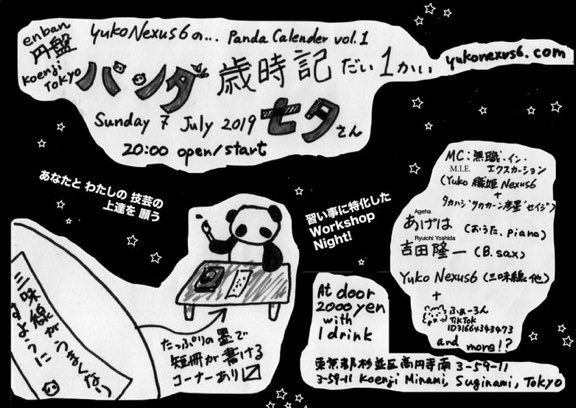 enban
円盤
koenji
Tokyo
yukoNexus6の... Panda Calender vol.1
パンダ 歳時記 だい1かい
yukonexus6.com
Sunday 7 July 2019
七夕さん
20:00 open/start
あなたと わたしの 技芸の
上達を 願う
習い事に特化した
Workshop
Night!
MC:無職・イン・
M.I.E. エクスカーション
(Yuko 織姫 Nexus6
+
Ageha
あげは (おうた、piano)
Ryuichi Yoshida
吉田隆一 (B.sax)
Yuko Nexus6 (三味線、他)
+
ふぁーろん
TikTok
and more!?
三味線がうまくなり
ますように
たっぷりの墨で
短冊が書ける
コーナーあり
At door
2000 yen
with
1 drink
東京都杉並区高円寺南 3-59-11
3-59-11 Koenji Minami, Suginami, Tokyo